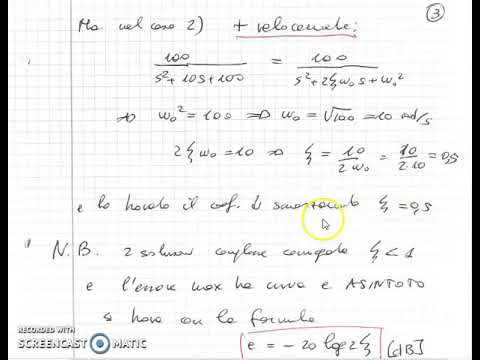 3
Ma nel caso 2) + velocemente:
100 / s²+10s+100 = 100 / s²+2ξω₀s+ω₀²
⇒ ω₀² = 100 ⇒ ω₀ = √100 = 10 rad/s
2ξω₀ = 10 ⇒ ξ = 10 / 2ω₀ = 10 / 2·10 = 0,5
e ho trovato il coef. di smorzamento ξ = 0,5
N.B. 2 soluzioni complesse coniugate ξ < 1
e l'errore max tra curva e ASINTOTO
si trova con la formula
e = - 20 log 2ξ [dB]
RECORDED WITH
SCREENCAST MATIC